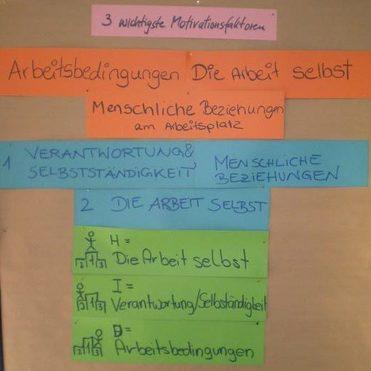 3 wichtigste Motivationsfaktoren
Arbeitsbedingungen Die Arbeit selbst
Menschliche Beziehungen
am Arbeitsplatz
1 VERANTWORTUNG&
SELBSTSTÄNDIGKEIT
MENSCHLICHE
BEZIEHUNGEN
2 DIE ARBEIT SELBST
H =
2 1 3 Die Arbeit selbst
I =
2 1 3 Verantwortung/Selbständigkeit
D =
2 1 3 Arbeitsbedingungen